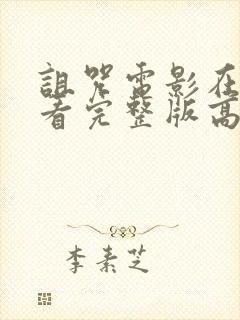 詛咒電影在
看完整版高
李素芝